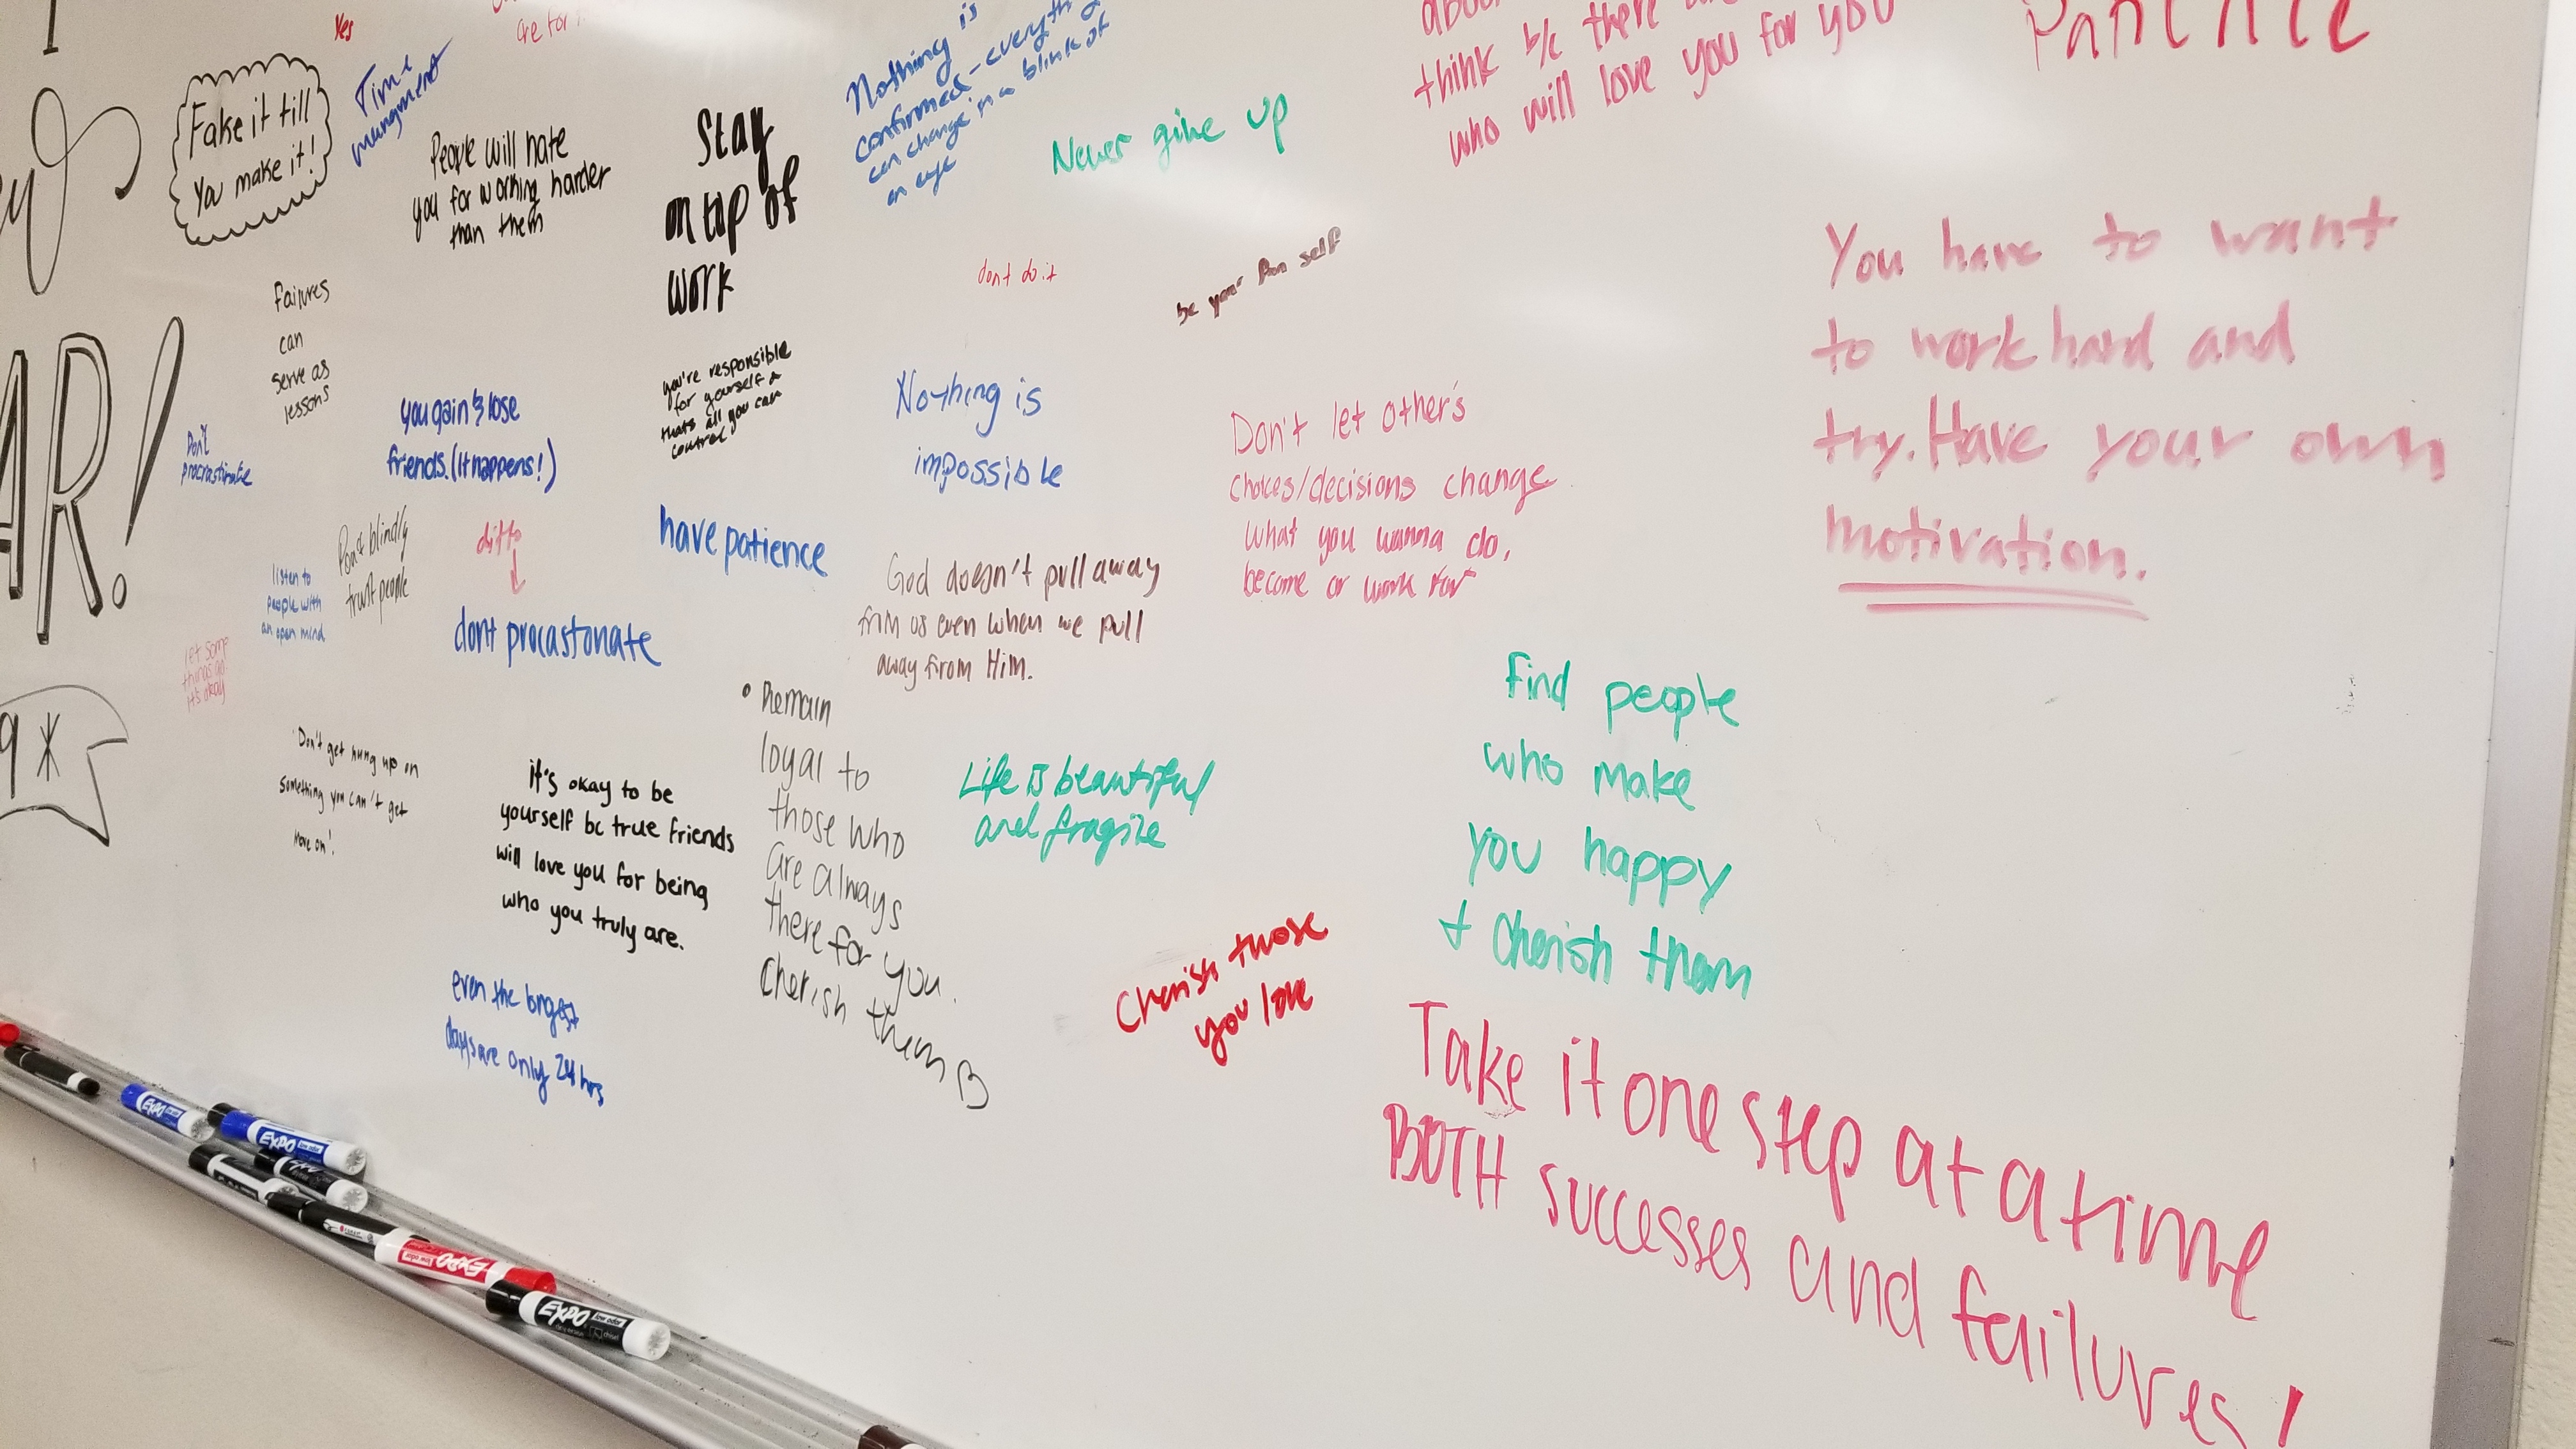 Yes
are for
Fake it till
you make it!
Time
mangment
People will hate
you for working harder
than them
Stay
on top of
work
Nothing is
confirmed - everything
can change in a blink of
an eye
Never give up
think b/c there
who will love you for you
Patience
failures
can
serve as
lessons
dont do it
be your own self
You have to want
to work hard and
try. Have your own
motivation.
AR!
Don't
procrastinate
you gain & lose
friends. (It happens!)
you're responsible
for yourself &
thats all you can
control
Nothing is
impossible
Don't let other's
choices/decisions change
what you wanna do,
become or work for
blindly
trust people
ditto
have patience
listen to
people with
an open mind
dont procastonate
God doesn't pull away
from us even when we pull
away from Him.
let some
things go
it's okay
9*
Don't get hung up on
something you can't get
move on!
it's okay to be
yourself bc true friends
will love you for being
who you truly are.
• Remain
loyal to
those who
are always
there for you.
Cherish them
Life is beautiful
and fragile
find people
who make
you happy
+ cherish them
Cherish those
you love
even the longest
days are only 24 hrs
Take it one step at a time
BOTH successes and failures!
EXPO
EXPO low odor
EXPO
EXPO low odor